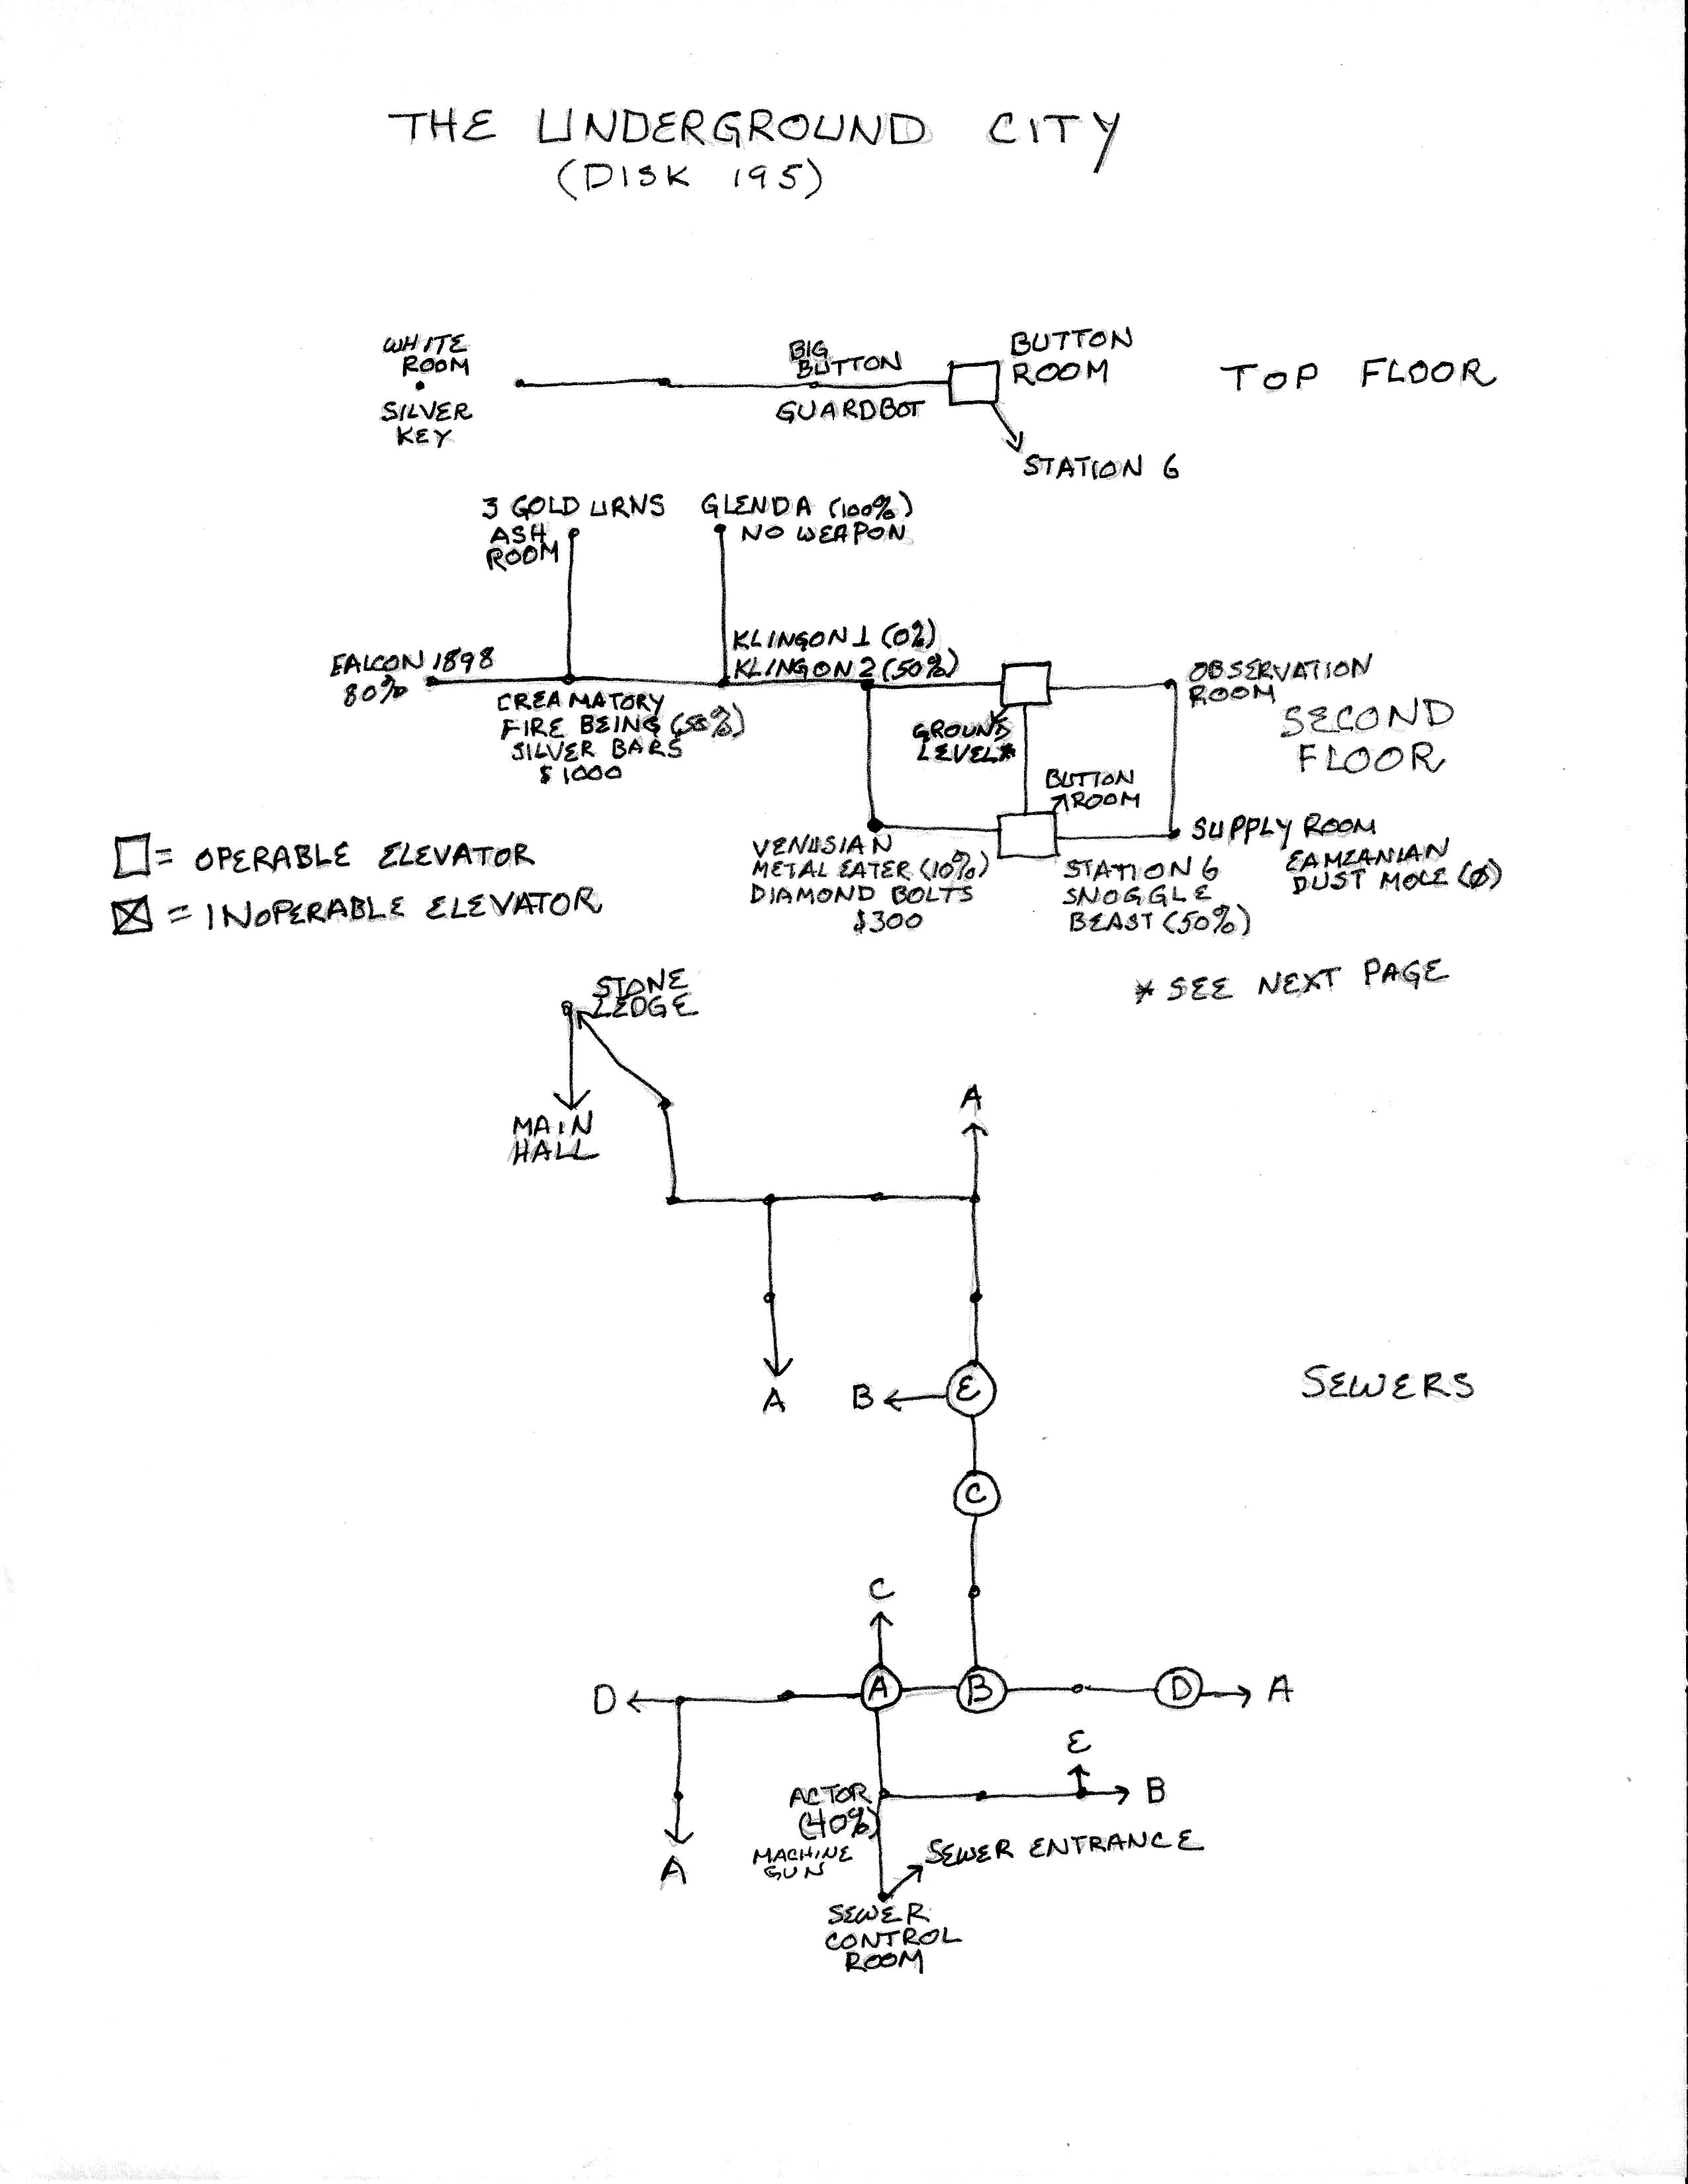 THE UNDERGROUND CITY
(DISK 195)
WHITE
ROOM
SILVER
KEY
BIG
BUTTON
GUARDBOT
BUTTON
ROOM
STATION 6
TOP FLOOR
3 GOLD URNS
ASH
ROOM
GLENDA (100%)
NO WEAPON
FALCON 1898
80%
KLINGON 1 (0%)
KLINGON 2 (50%)
CREAMATORY
FIRE BEING (50%)
SILVER BARS
$1000
GROUND
LEVEL*
OBSERVATION
ROOM
SECOND
FLOOR
BUTTON
ROOM
VENUSIAN
METAL EATER (10%)
DIAMOND BOLTS
$300
STATION 6
SNOGGLE
BEAST (50%)
SUPPLY ROOM
EAMZANIAN
DUST MOLE (0)
= OPERABLE ELEVATOR
= INOPERABLE ELEVATOR
* SEE NEXT PAGE
STONE
LEDGE
MAIN
HALL
A
A
B
E
SEWERS
C
C
D
A
B
D
A
E
B
A
ACTOR
(40%)
MACHINE
GUN
SEWER ENTRANCE
SEWER
CONTROL
ROOM